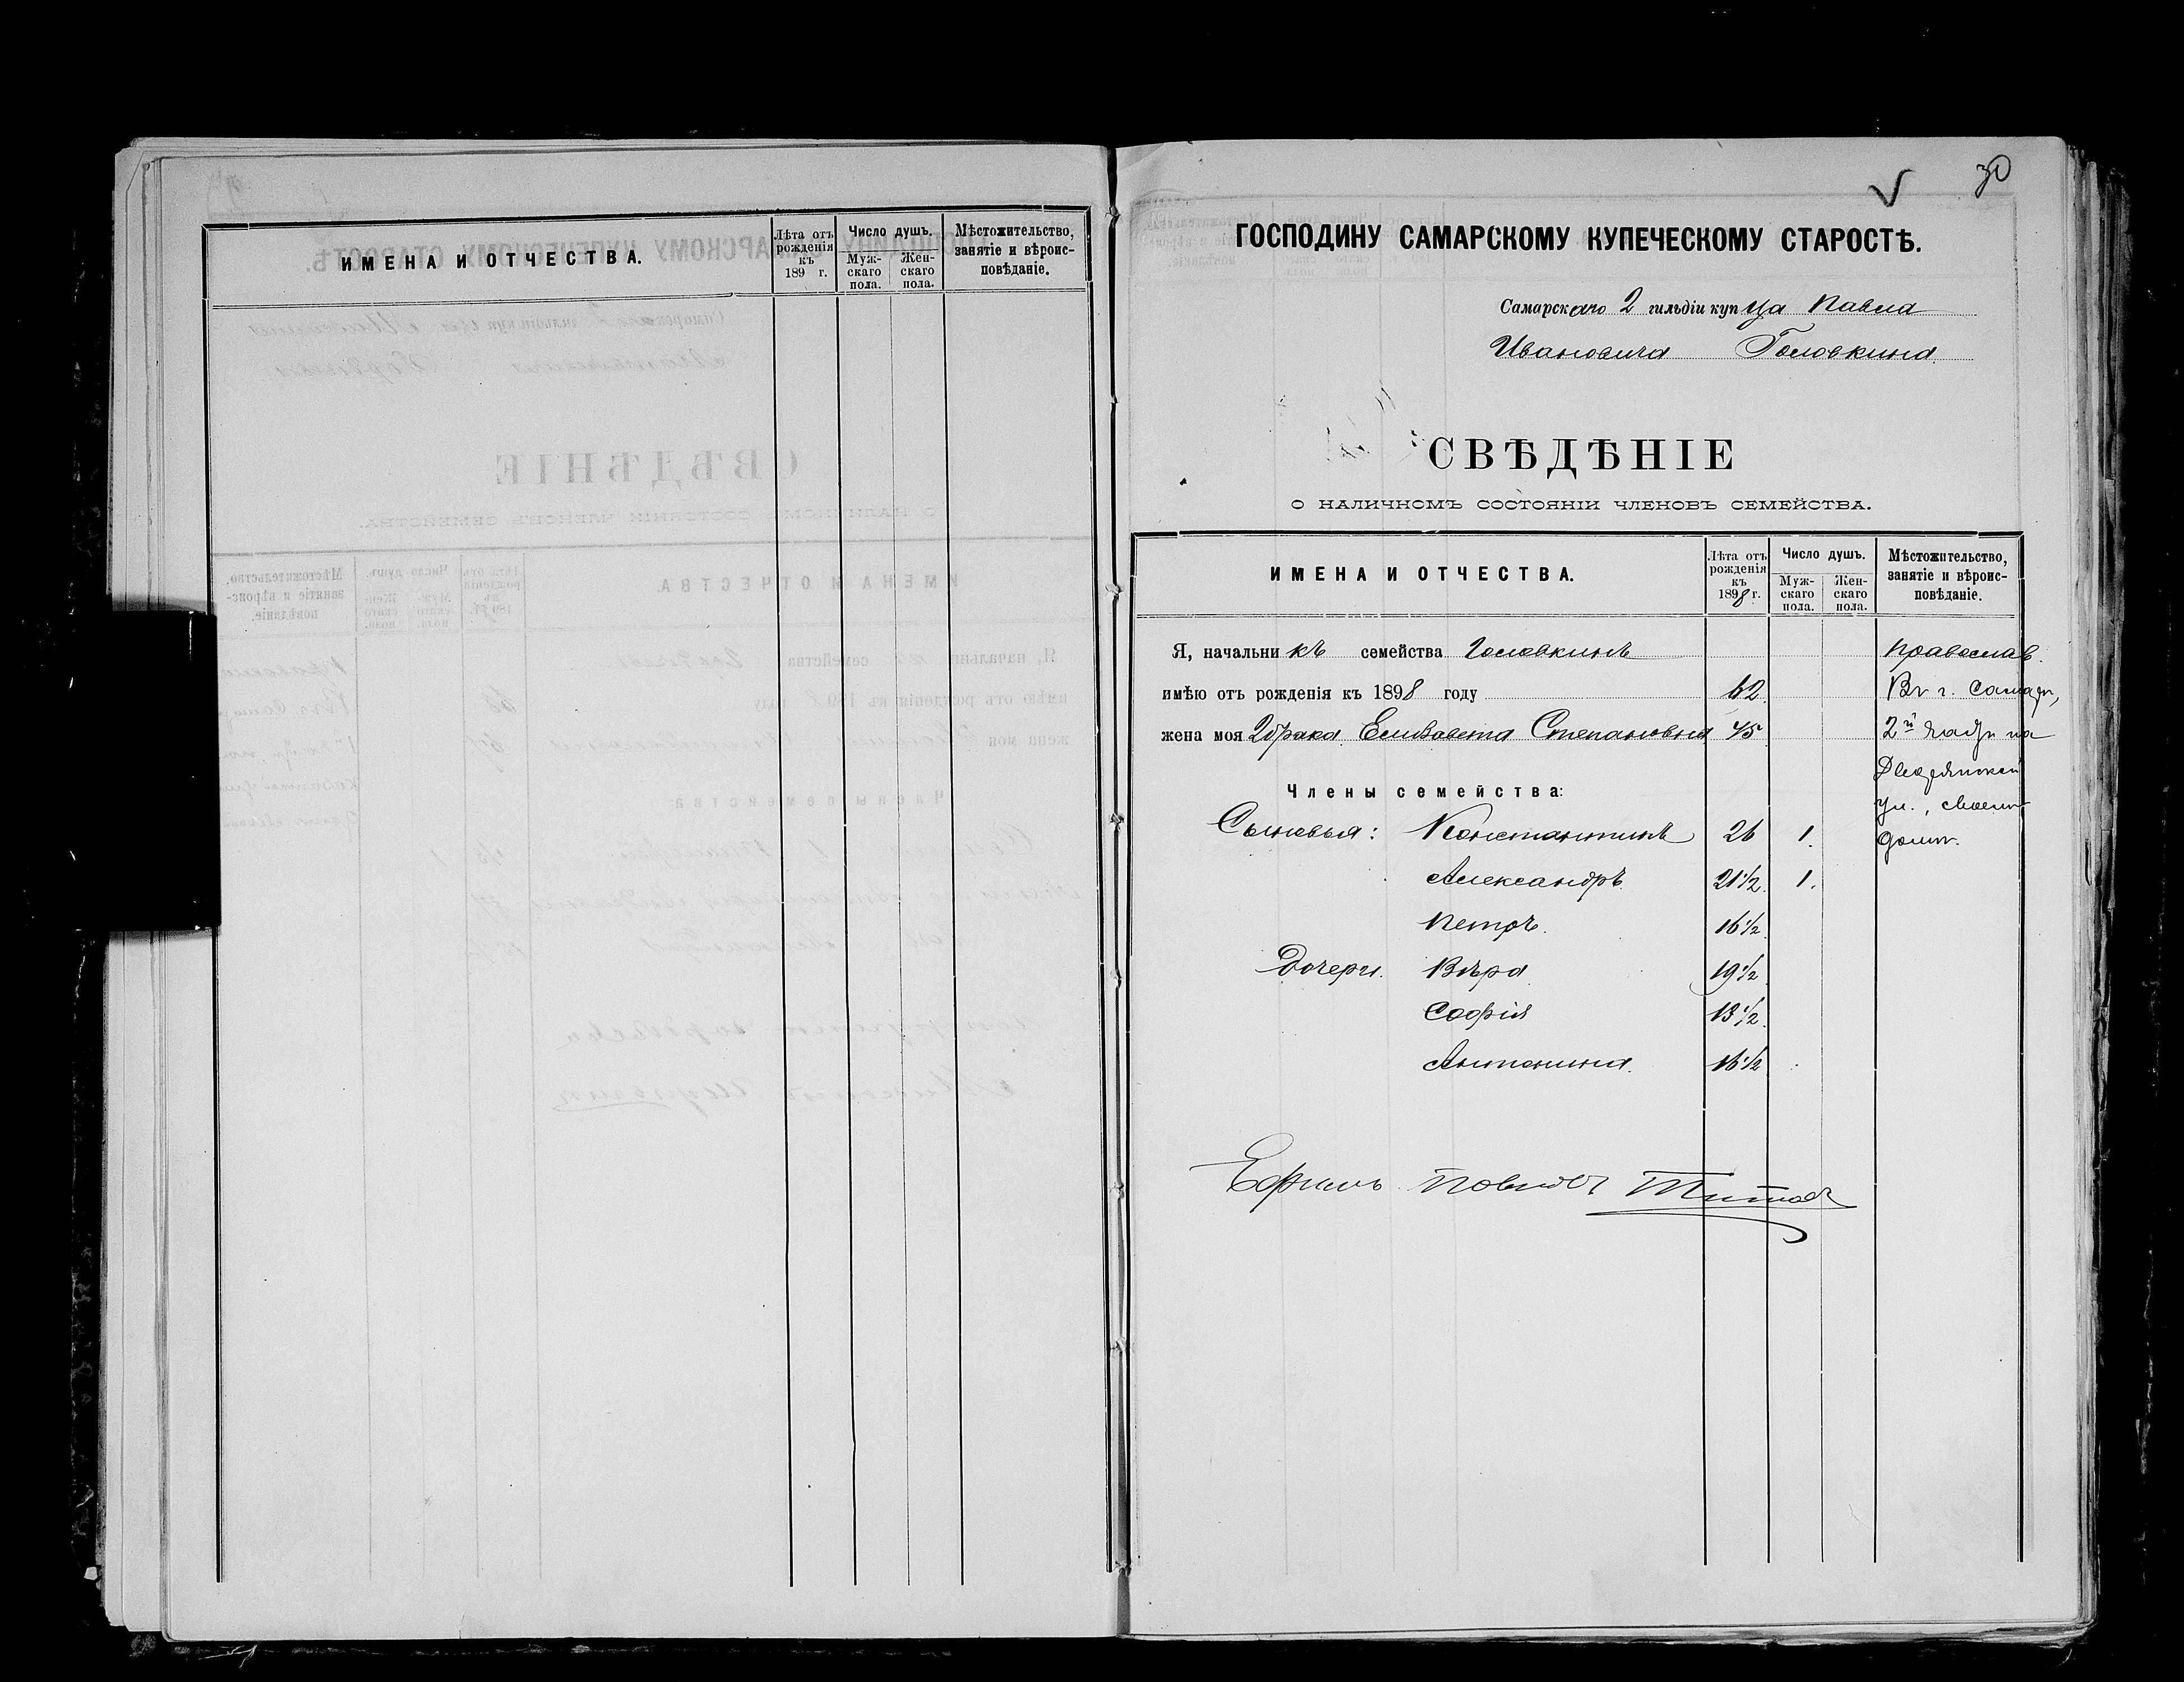 ИМЕНА И ОТЧЕСТВА.
Лѣта отъ рожденія къ 189 г.
Число душъ.
Муж-скаго пола.
Жен-скаго пола.
Мѣстожительство, занятіе и вѣроис-повѣданіе.
30
ГОСПОДИНУ САМАРСКОМУ КУПЕЧЕСКОМУ СТАРОСТѢ.
Самарскаго 2 гильдіи купца Павла
Ивановича Головкина
СВѢДѢНІЕ
О НАЛИЧНОМЪ СОСТОЯНІИ ЧЛЕНОВЪ СЕМЕЙСТВА.
ИМЕНА И ОТЧЕСТВА.
Лѣта отъ рожденія къ 1898 г.
Число душъ.
Муж-скаго пола.
Жен-скаго пола.
Мѣстожительство, занятіе и вѣроис-повѣданіе.
Я, начальникъ семейства Головкинъ православ.
имѣю отъ рожденія къ 1898 году 62 Въ г. Самарѣ,
жена моя 2 брака Елизавета Степановна 45 2й части на
Дворянской
Члены семейства:
ул., своемъ
Сыновья: Константинъ 26 1. домѣ.
Александръ 21 1/2. 1.
Петръ. 16 1/2.
Дочери. Вѣра 19 1/2
Софія 13 1/2.
Антонина. 16 1/2